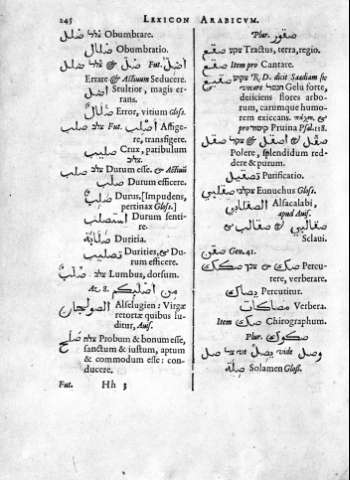 245 LEXICON ARABICVM.
ضلل Obumbrare.
ضلال Obumbratio.
Fut. &
Errare & Activum Seducere.
Stultior, magis er-
rans.
Error, vitium Gloss.
صلب Fut. Affige-
re, transfigere.
صليب Crux, patibulum
صلب Durum esse. & Activũ
Durum efficere.
Durus, [Impudens,
pertinax Gloss.]
Durum senti-
re.
صلابة Duritia.
تصليب Durities, & Du-
rum efficere.
صلب Lumbus, dorsum.
Act. 2. من
الصولجان Alselugien: Virgæ
retortæ quibus lu-
ditur, Avis.
صلح Probum & bonum esse,
sanctum & iustum, aptum
& commodum esse: con-
ducere.
Fut. Hh 3
Plur. صقور
صقع Tractus, terra, regio.
صقع Item pro Cantare.
R. D. dicit Saadiam se
vocare Gelu forte,
deiiciens flores arbo-
rum, carumque humo-
rem exiccans. &
pro Pruina Psal. 118.
صقل &
Polere, splendidum red-
dere & purum.
تصقيل Purificatio.
صقلبي Eunuchus Gloss.
الصقلابي Alsacalabi,
apud Avis.
صقالبي & صقالب
Sclaui.
صقن Gen. 41.
صك & صكك Percu-
tere, verberare.
Percutitur.
مصاكات Verbera.
Item صك Chirographum.
Plur. صكوك
صل vide وصل
صلة Solamen Gloss.